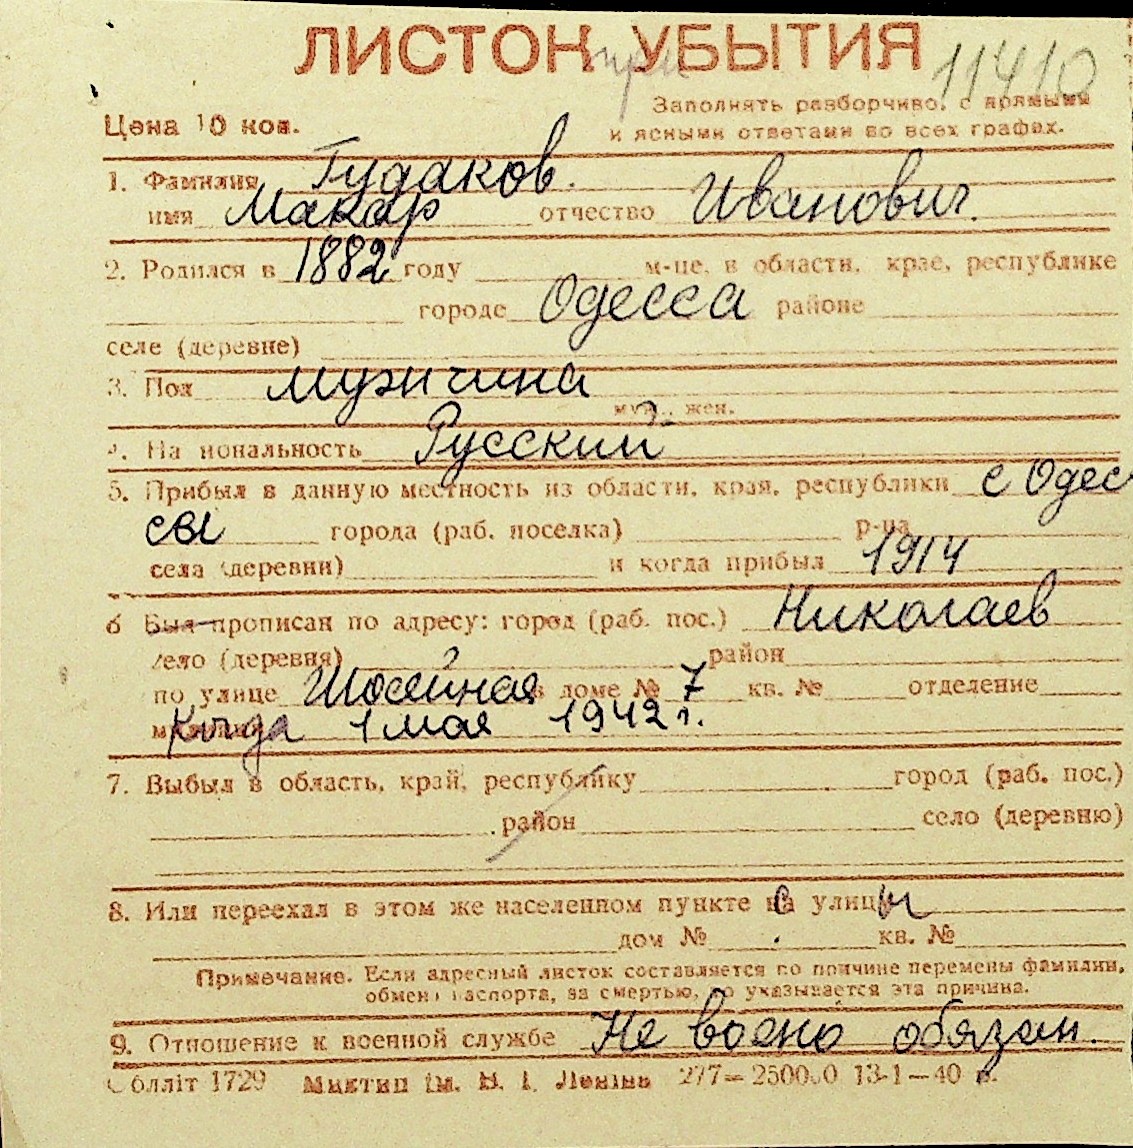 ЛИСТОК УБЫТИЯ
при
11410
Заполнять разборчиво, с прямыми
Цена 10 коп.
и ясными ответами во всех графах.
1. Фамилия Гудаков.
имя Макар отчество Иванович.
2. Родился в 1882 году м-це, в области, крае, республике
городе Одесса районе
селе (деревне)
3. Пол мужчина
муж., жен.
4. Национальность Русский
5. Прибыл в данную местность из области, края, республики с Одес
сы города (раб. поселка) р-на
села (деревни) и когда прибыл 1914
6 Был прописан по адресу: город (раб. пос.) Николаев
село (деревня) район
по улице Шосейная в доме № 7 кв. № отделение
милиции Когда 1 мая 1942 г.
7. Выбыл в область, край, республику город (раб. пос.)
район село (деревню)
8. Или переехал в этом же населенном пункте с улицы
дом № кв. №
Примечание. Если адресный листок составляется по причине перемены фамилии,
обмена паспорта, за смертью, то указывается эта причина.
9. Отношение к военной службе Не воено обязан.
Облліт 1729 Миктип ім. В. І. Леніна 277—250000 13-1—40 р.